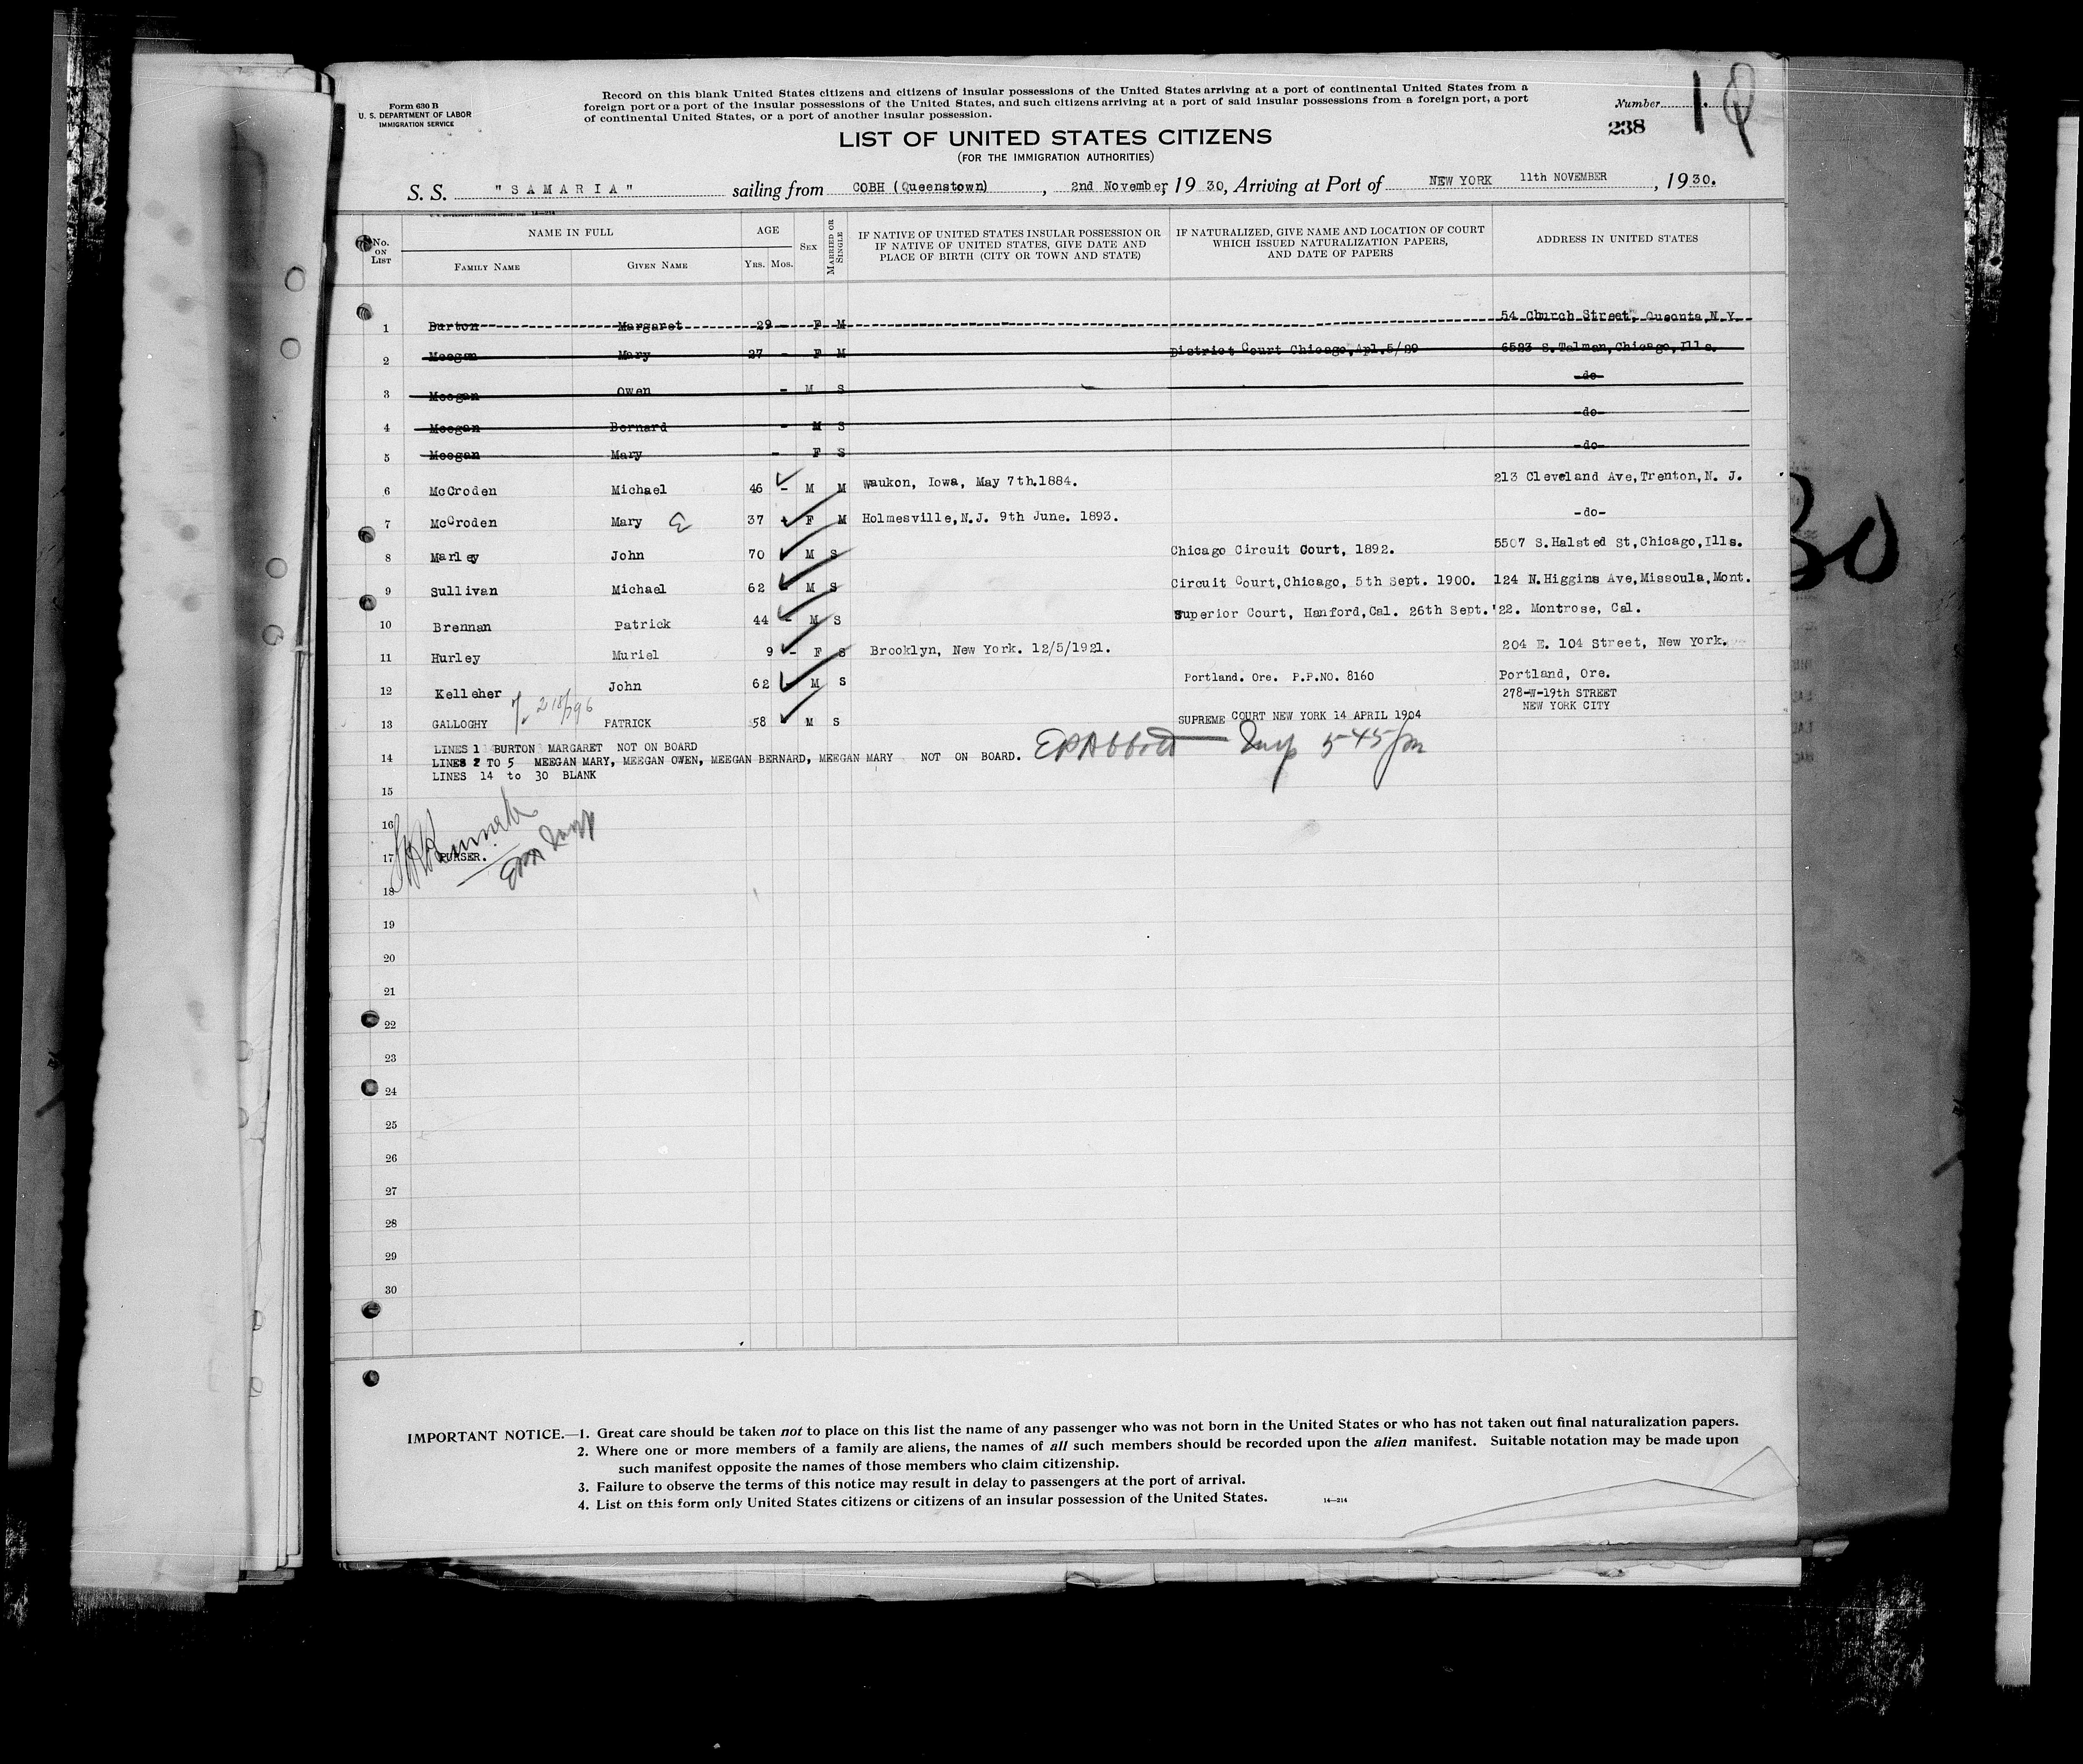 Form 630 B
U. S. DEPARTMENT OF LABOR
IMMIGRATION SERVICE
Record on this blank United States citizens and citizens of insular possessions of the United States arriving at a port of continental United States from a
foreign port or a port of the insular possessions of the United States, and such citizens arriving at a port of said insular possessions from a foreign port, a port
of continental United States, or a port of another insular possession.
Number
238
LIST OF UNITED STATES CITIZENS
(FOR THE IMMIGRATION AUTHORITIES)
S. S. "SAMARIA" sailing from COBH (Queenstown), 2nd November, 1930, Arriving at Port of NEW YORK 11th NOVEMBER, 1930.
No. ON LIST
NAME IN FULL
FAMILY NAME GIVEN NAME
AGE
YRS. MOS.
SEX
MARRIED OR SINGLE
IF NATIVE OF UNITED STATES INSULAR POSSESSION OR
IF NATIVE OF UNITED STATES, GIVE DATE AND
PLACE OF BIRTH (CITY OR TOWN AND STATE)
IF NATURALIZED, GIVE NAME AND LOCATION OF COURT
WHICH ISSUED NATURALIZATION PAPERS,
AND DATE OF PAPERS
ADDRESS IN UNITED STATES
1 Burton Margaret 29 - F M 54 Church Street, Queonta, N.Y.
2 Meegan Mary 27 - F M District Court Chicago, Apl. 5/29 6523 S. Talman, Chicago, Ills.
3 Meegan Owen - M S -do-
4 Meegan Bernard - M S -do-
5 Meegan Mary - F S -do-
6 McCroden Michael 46 - M M Waukon, Iowa, May 7th.1884. 213 Cleveland Ave, Trenton, N. J.
7 McCroden Mary E 37 F M Holmesville, N.J. 9th June. 1893. -do-
8 Marley John 70 M S Chicago Circuit Court, 1892. 5507 S. Halsted St, Chicago, Ills.
9 Sullivan Michael 62 M S Circuit Court, Chicago, 5th Sept. 1900. 124 N. Higgins Ave, Missoula, Mont.
10 Brennan Patrick 44 - M S Superior Court, Hanford, Cal. 26th Sept. '22. Montrose, Cal.
11 Hurley Muriel 9 - F S Brooklyn, New York. 12/5/1921. 204 E. 104 Street, New York.
12 Kelleher John 62 - M S Portland. Ore. P.P.NO. 8160 Portland, Ore.
13 GALLOGHY PATRICK 58 M S SUPREME COURT NEW YORK 14 APRIL 1904 278-W-19th STREET
NEW YORK CITY
LINES 1 BURTON MARGARET NOT ON BOARD
14 LINES 2 TO 5 MEEGAN MARY, MEEGAN OWEN, MEEGAN BERNARD, MEEGAN MARY NOT ON BOARD. EPAbbott Insp 545 pm
LINES 14 to 30 BLANK
15
16
17 PURSER.
EPA Insp
18
19
20
21
22
23
24
25
26
27
28
29
30
IMPORTANT NOTICE.—1. Great care should be taken not to place on this list the name of any passenger who was not born in the United States or who has not taken out final naturalization papers.
2. Where one or more members of a family are aliens, the names of all such members should be recorded upon the alien manifest. Suitable notation may be made upon
such manifest opposite the names of those members who claim citizenship.
3. Failure to observe the terms of this notice may result in delay to passengers at the port of arrival.
4. List on this form only United States citizens or citizens of an insular possession of the United States. 14—214